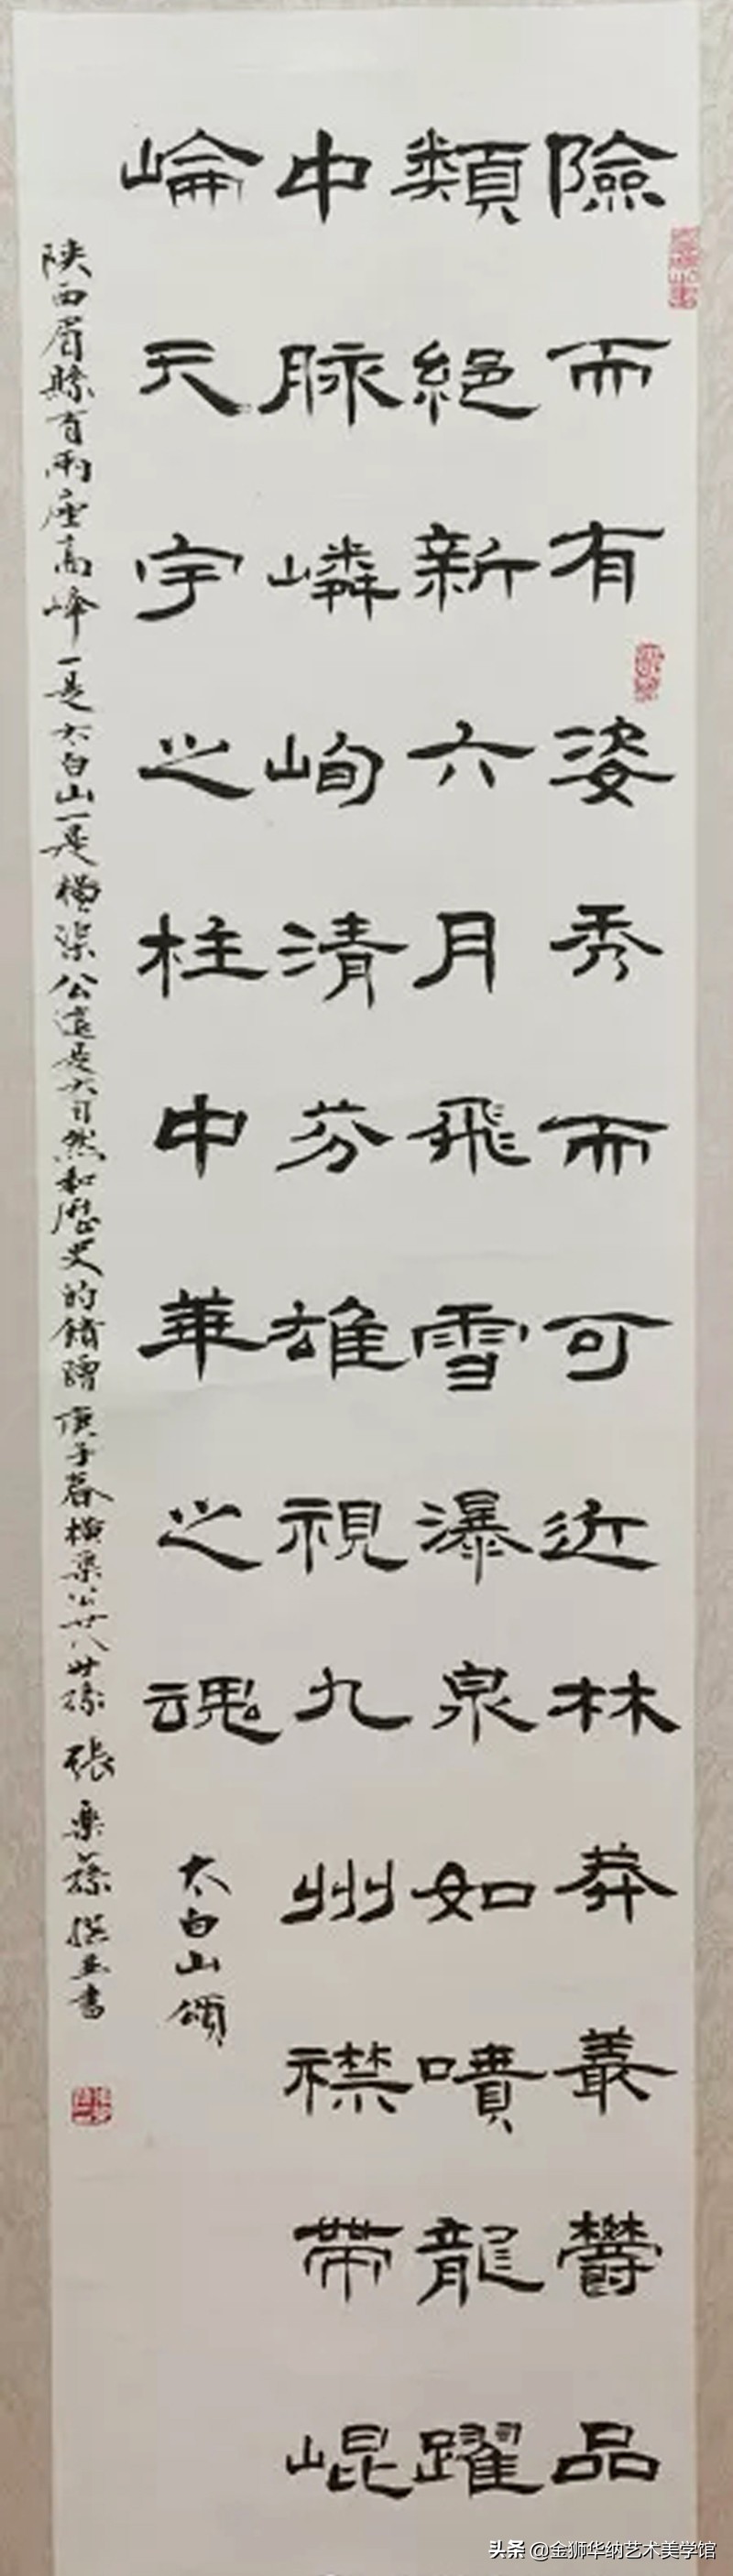 險而有姿秀而可近林莽叢鬱品
類絕新六月飛雪瀑泉如噴龍躍
中脉嶙峋清芬雄視九州襟帶崐
崘天宇之柱中華之魂
太白山頌
陕西眉縣有兩座高峰一是太白山一是橫渠公這是大自然和歷史的饋贈 庚子春橫渠公廿八世孫 張樂蓀 撰并書
头条 @金狮华纳艺术美学馆